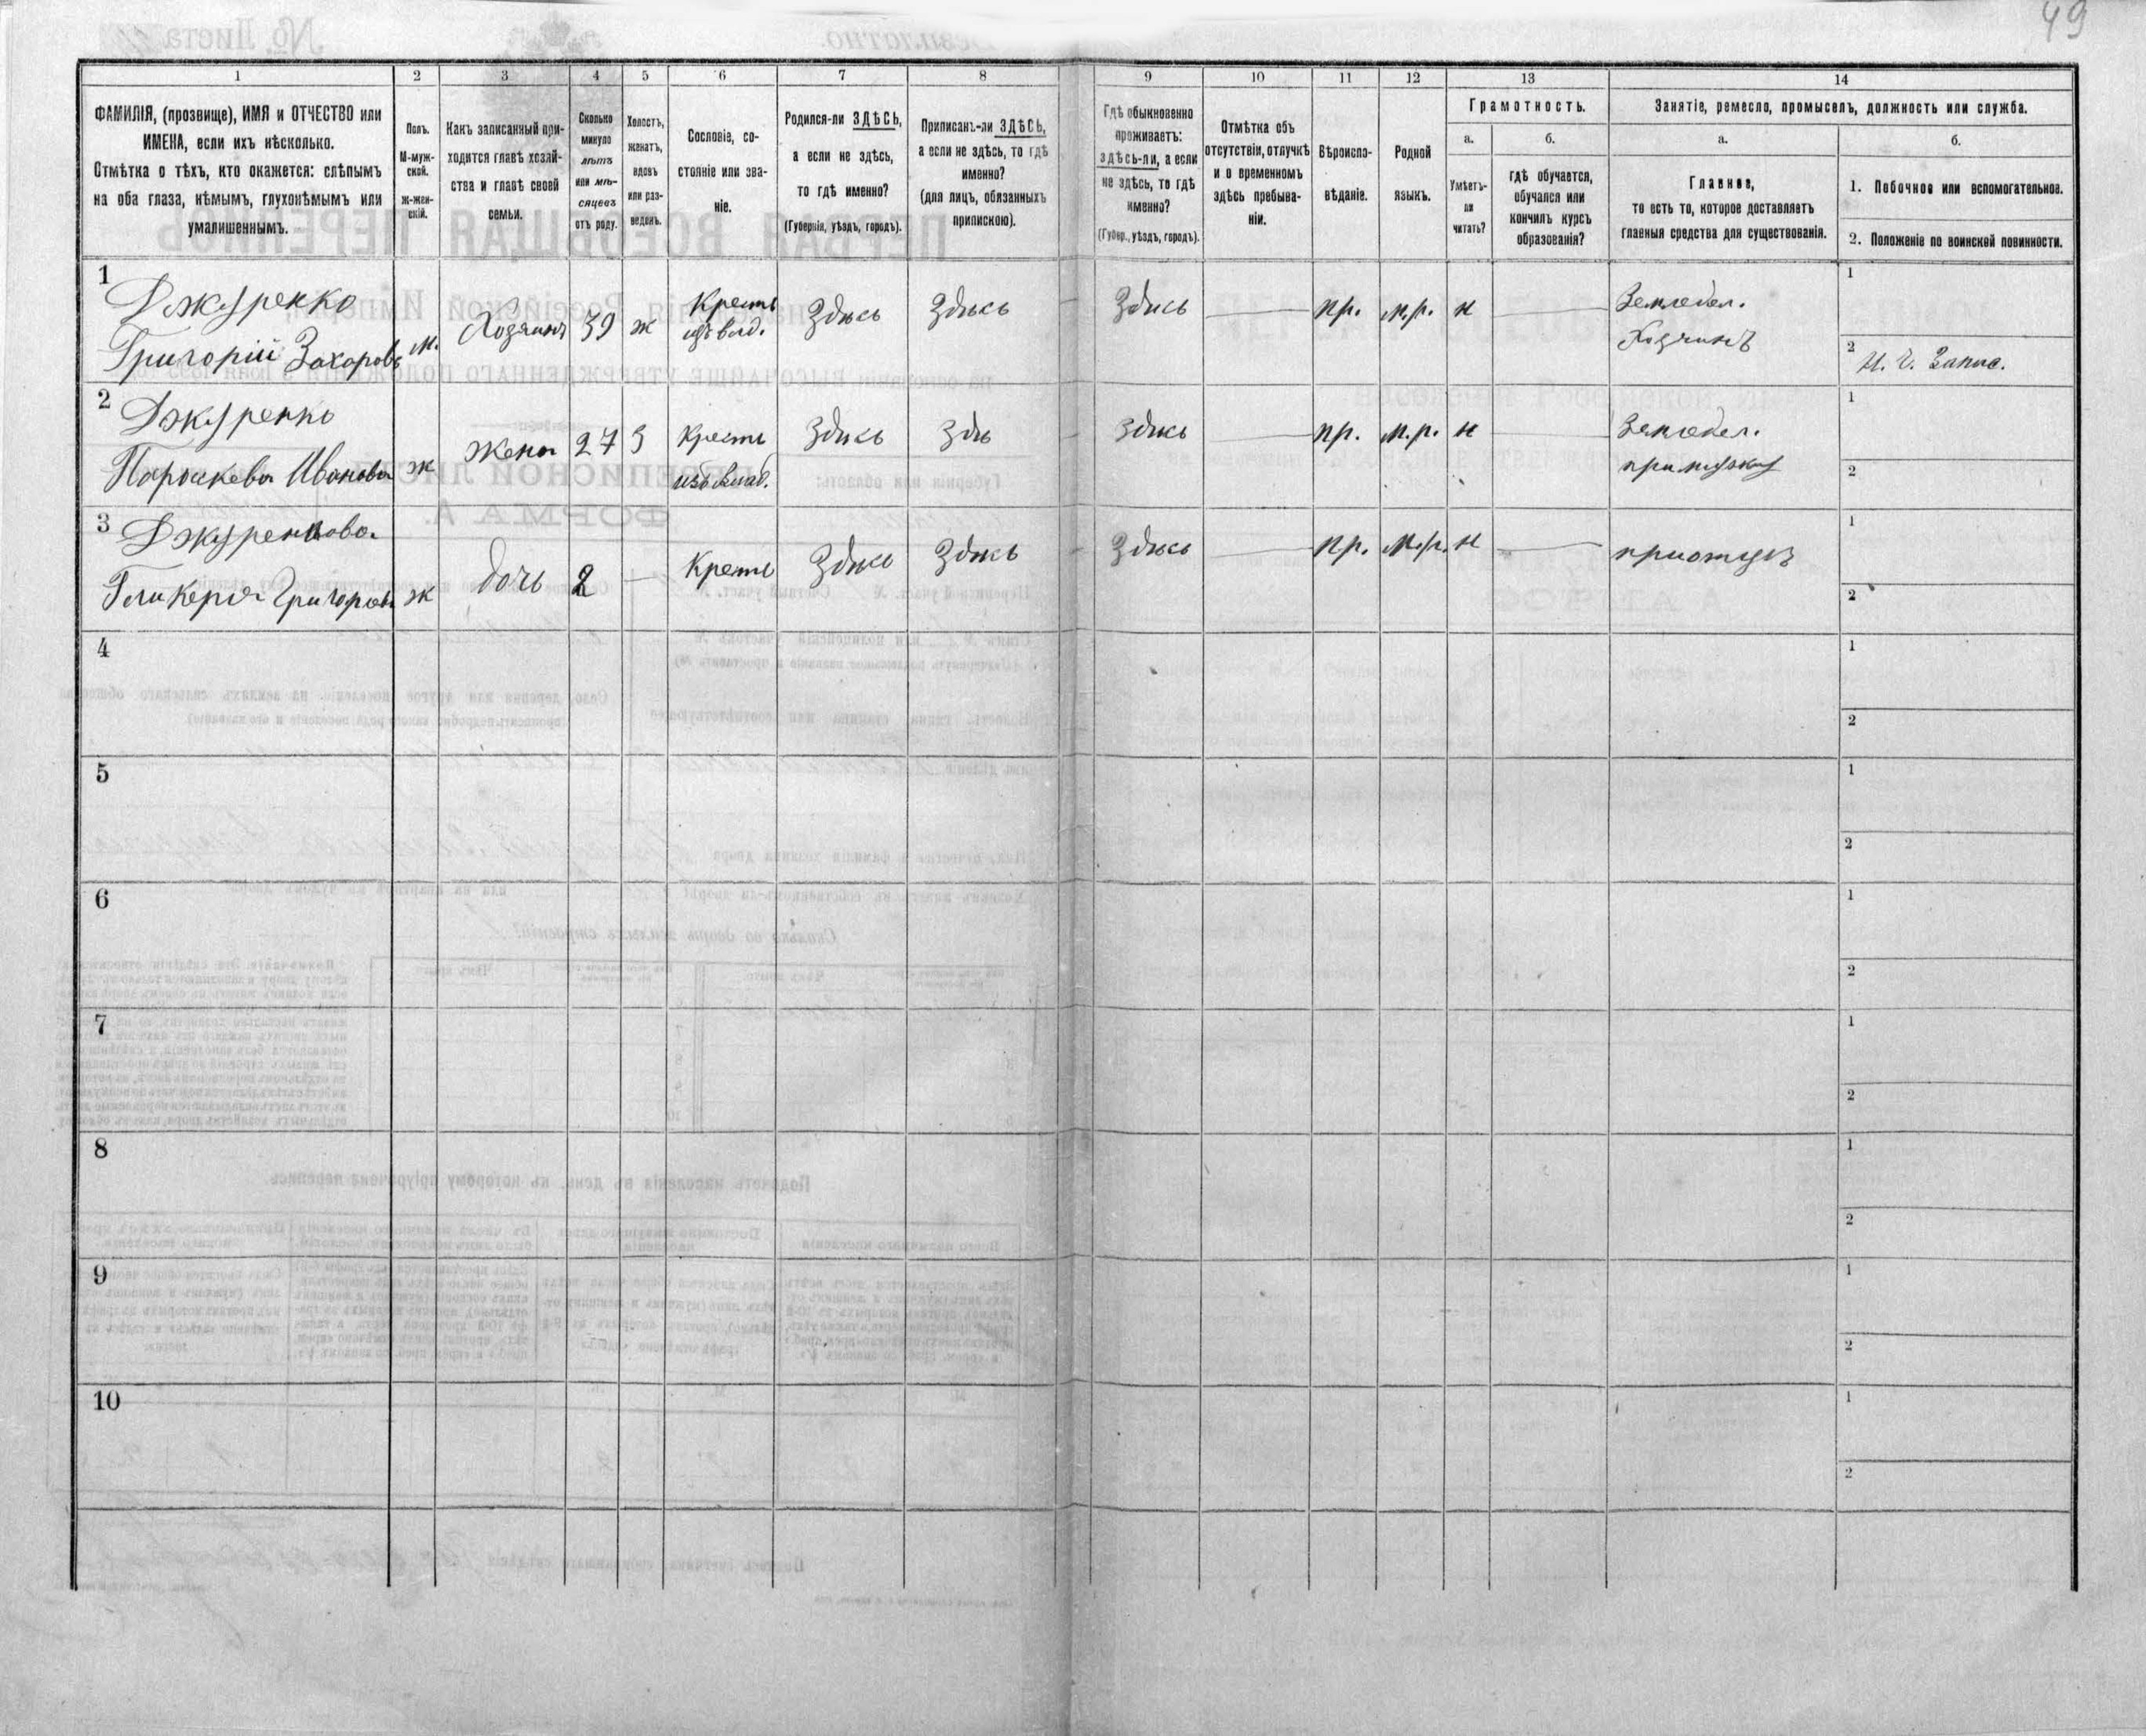 49
1 2 3 4 5 6 7 8 9 10 11 12 13 14
ФАМИЛІЯ, (прозвище), ИМЯ и ОТЧЕСТВО или
ИМЕНА, если ихъ нѣсколько.
Отмѣтка о тѣхъ, кто окажется: слѣпымъ
на оба глаза, нѣмымъ, глухонѣмымъ или
умалишеннымъ.
Полъ.
М-муж-
ской.
ж-жен-
скій.
Какъ записанный при-
ходится главѣ хозяй-
ства и главѣ своей
семьи.
Сколько
минуло
лѣтъ
или мѣ-
сяцевъ
отъ роду.
Холостъ,
женатъ,
вдовъ
или раз-
веденъ.
Сословіе, со-
стояніе или зва-
ніе.
Родился-ли ЗДѢСЬ,
а если не здѣсь,
то гдѣ именно?
(Губернія, уѣздъ, городъ).
Приписанъ-ли ЗДѢСЬ,
а если не здѣсь, то гдѣ
именно?
(для лицъ, обязанныхъ
припискою).
Гдѣ обыкновенно
проживаетъ:
здѣсь-ли, а если
не здѣсь, то гдѣ
именно?
(Губер., уѣздъ, городъ).
Отмѣтка объ
отсутствіи, отлучкѣ
и о временномъ
здѣсь пребыва-
ніи.
Вѣроиспо-
вѣданіе.
Родной
языкъ.
Грамотность.
а.
Умѣетъ-
ли
читать?
б.
гдѣ обучается,
обучался или
кончилъ курсъ
образованія?
Занятіе, ремесло, промыселъ, должность или служба.
а.
Главное,
то есть то, которое доставляетъ
главныя средства для существованія.
б.
1. Побочное или вспомогательное.
2. Положеніе по воинской повинности.
1
Джуренко
Григорій Захаровъ
м.
Хозяинъ
39
ж
Крестьъ
изъ влад.
Здѣсь
Здѣсь
Здѣсь
пр.
м.р.
н
Земледел.
Хозяинъ
1
2
Н. Ч. Запас.
2
Джуренко
Параскева Иванова
ж
жена
27
З
Кресть
изъ влад.
Здѣсь
Здѣ
Здѣсь
пр.
м.р.
н
Земледел.
при мужу
1
2
3
Джуренкова
Гликерія Григорьев
ж
дочь
2
Кресть
Здѣсь
Здѣсь
Здѣсь
пр.
м.р.
н
при отцѣ
1
2
4
1
2
5
1
2
6
1
2
7
1
2
8
1
2
9
1
2
10
1
2